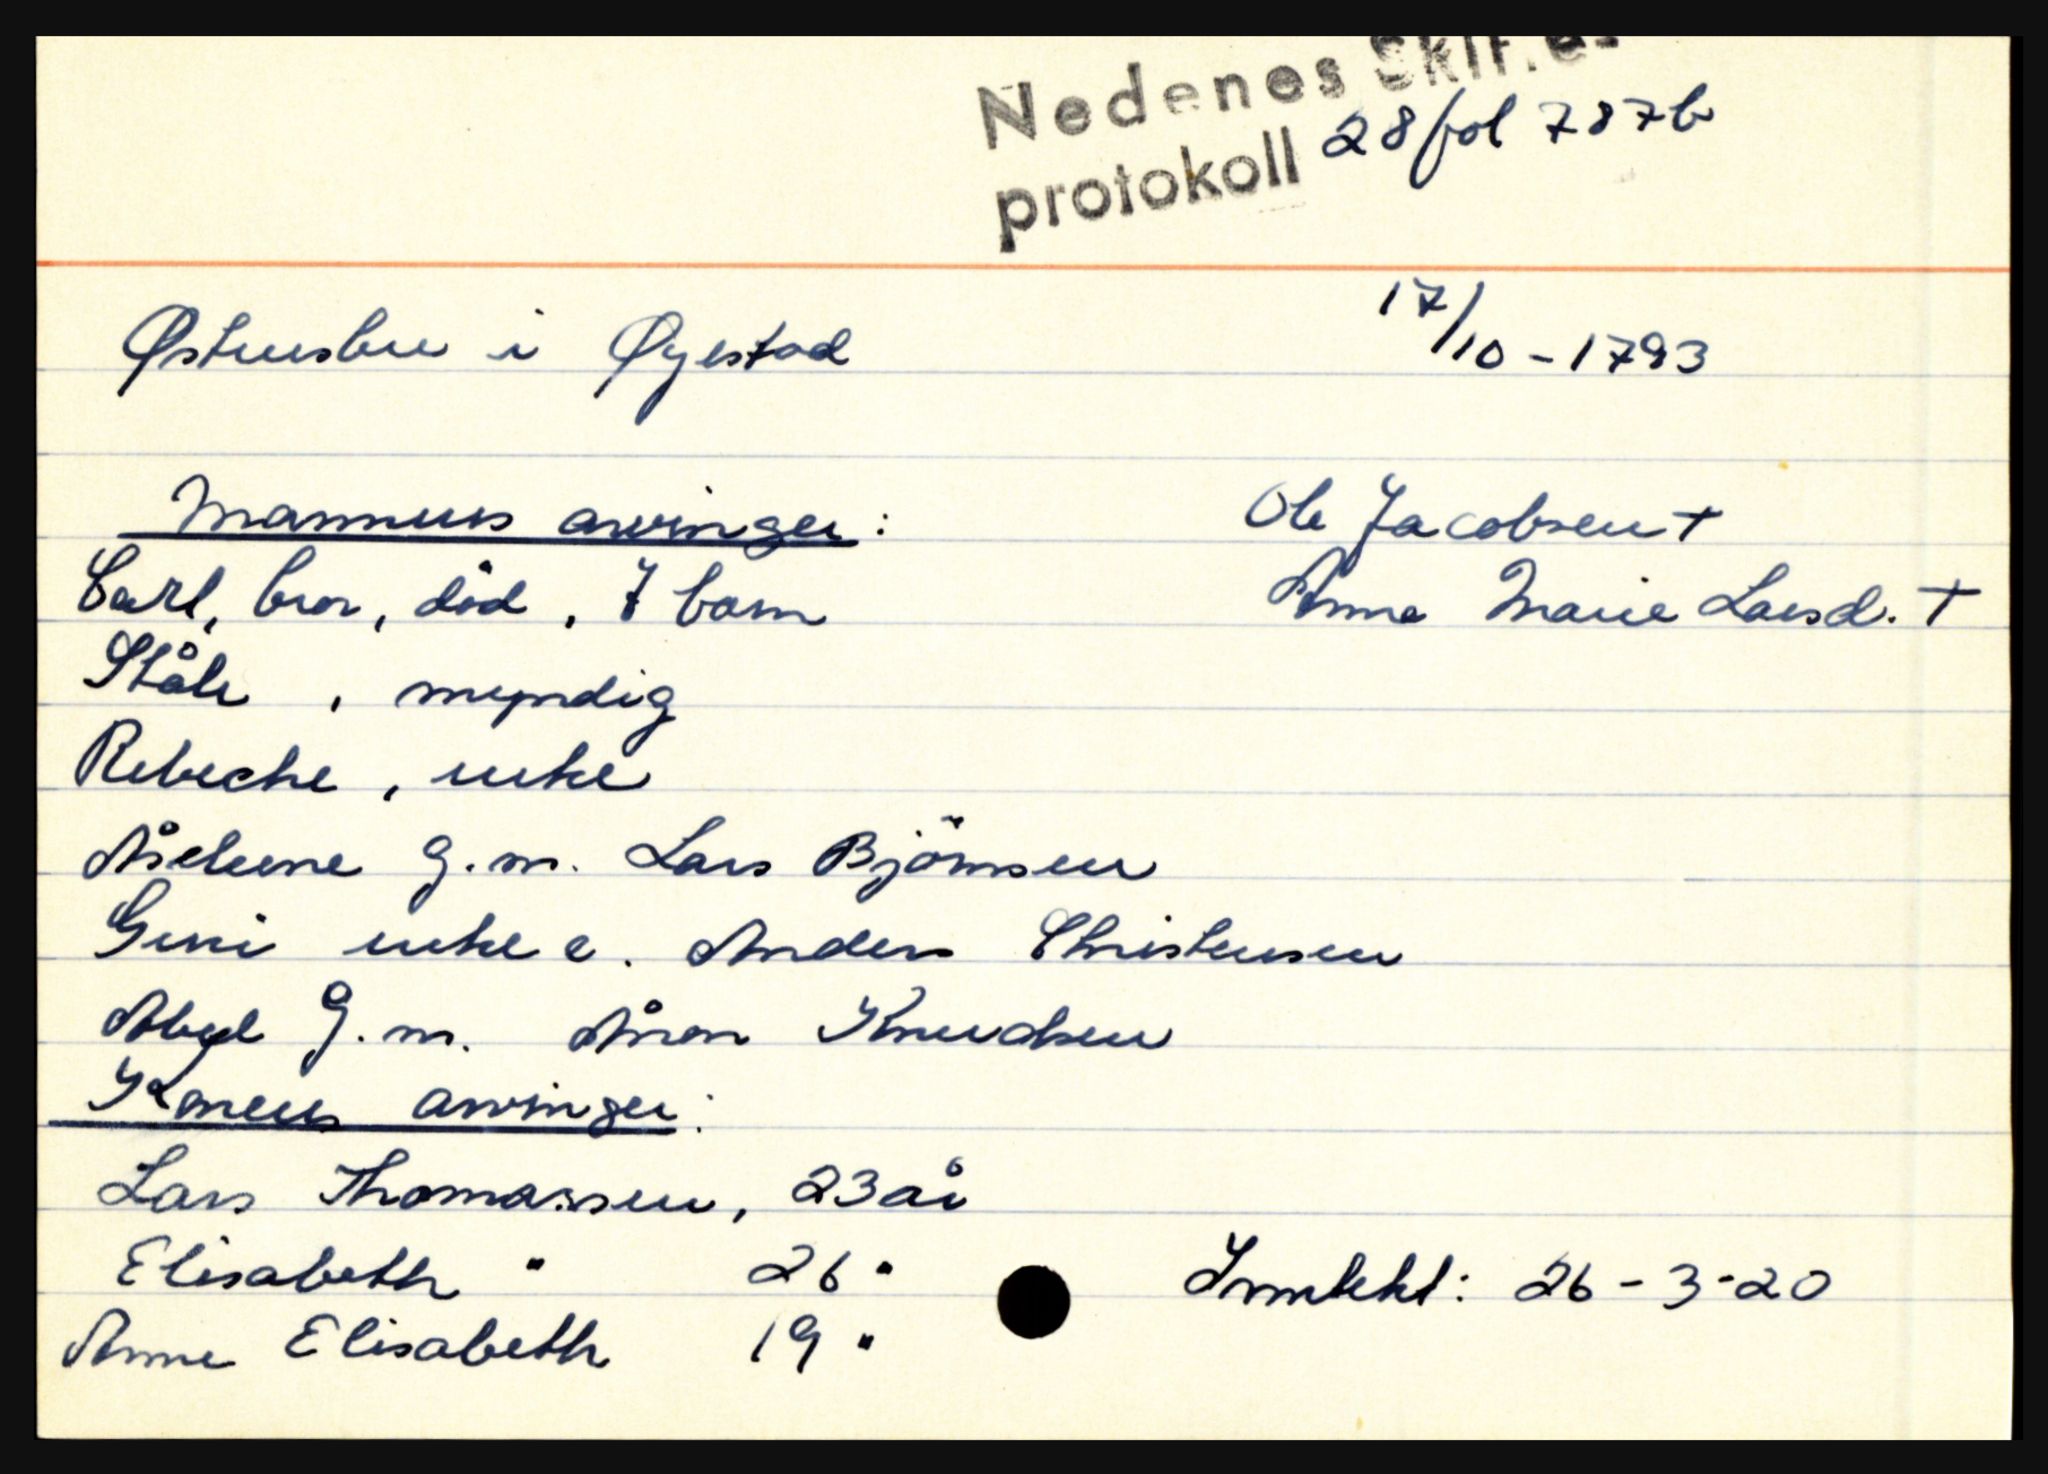 Nedenes Skifte-
protokoll 28 fol 787b
Østensbu i Øyestad
17/10 - 1793
Mannens arvinger:
Ole Jacobsen †
Carl, bror, død, 7 barn
Anne Marie Larsd. †
Ståle, myndig
Rebeche, enke
Åselene g.m. Lars Björnsen
Guri enke e. Anders Christensen
Abyel g.m. Aron Knudsen
Konens arvinger:
Lars Thomassen, 23 år
Elisabeth " 26 "
Inntekt: 26-3-20
Anne Elisabeth 19 "